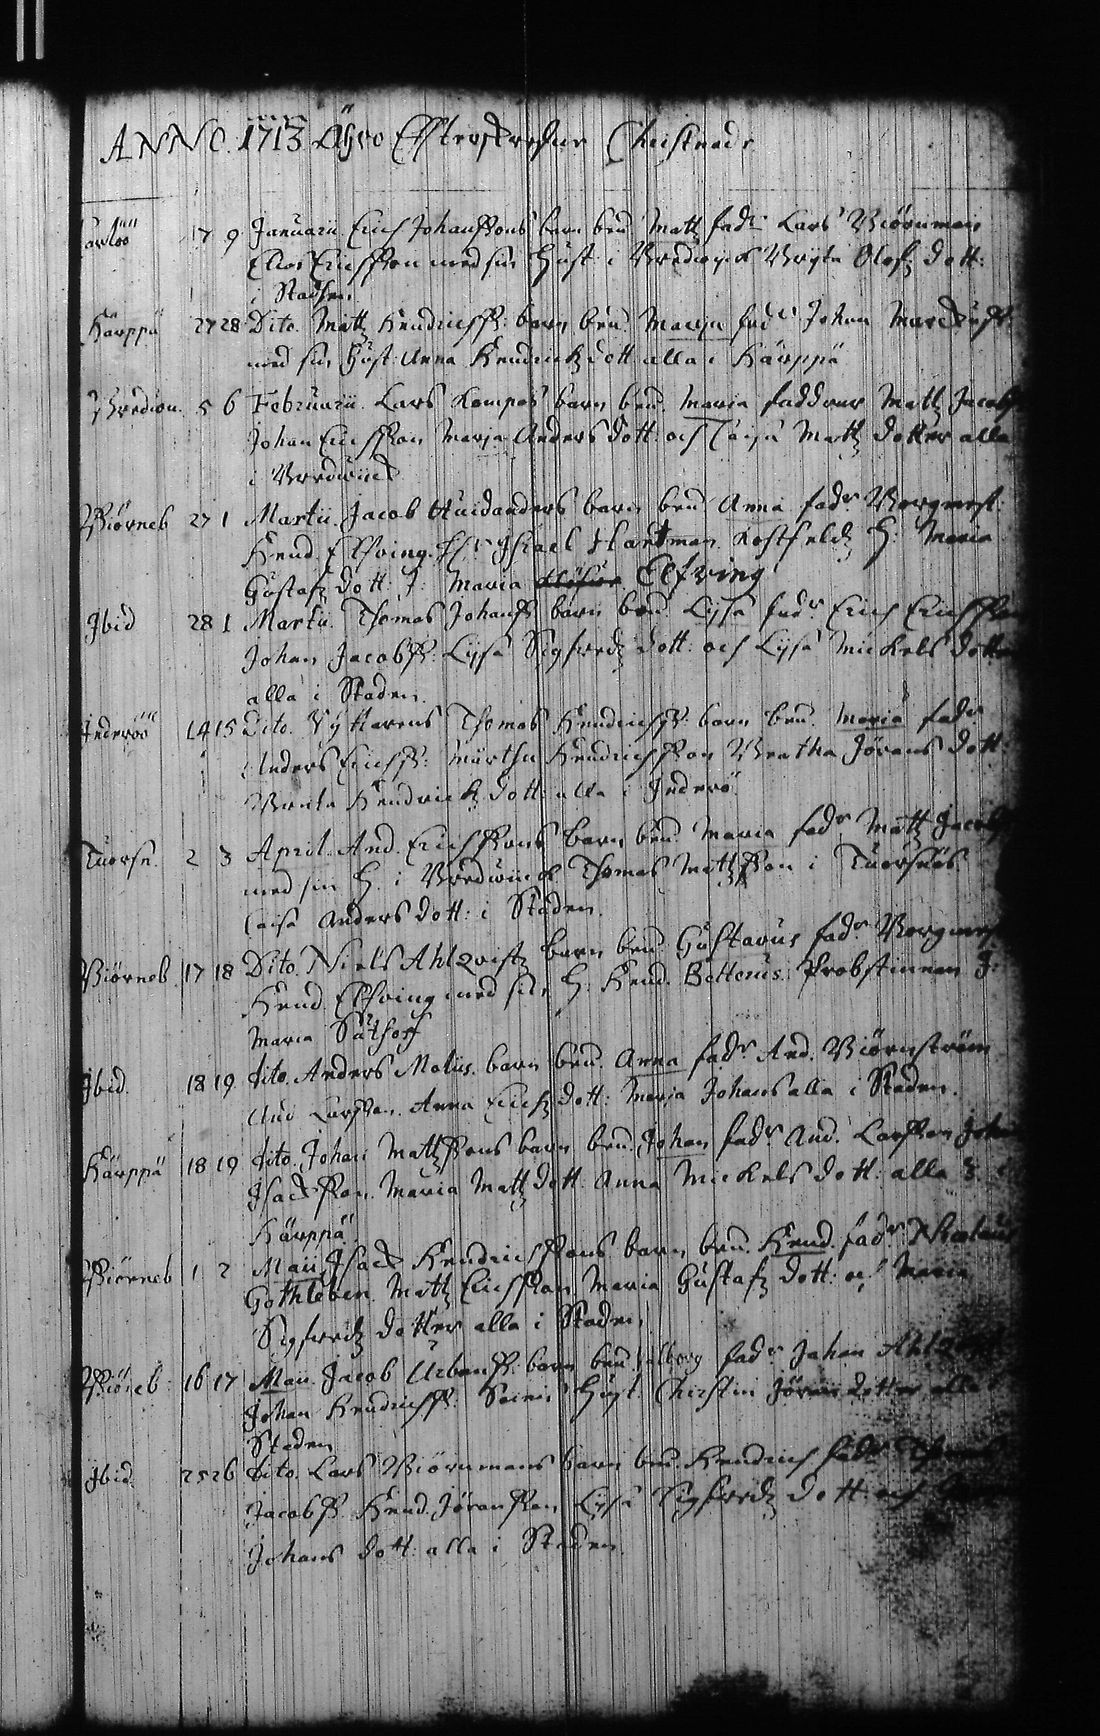 ANNO. 1713 Ähro Effterskrefne Christnade
17 9 Januarii Erich Johanssons barn bnd Matz fadr Lars Biörnman
Ericsson med sin Hust. i Bredwijk Bryta Olofz dott:
i Staden
Härppä 27 28 Dito. Matz Hendrichss: barn bnd. Maria fadr Johan
med sin Hust. Anna Hendrichz dott alla i Härppä
5 6 Februarii. Lars barn bnd. Maria faddrar Matz Jacobss
Johan Ericsson Marja Anders dott. och Caisa Matz dotter alla
i Bredwijk
Biörneb 27 1 Martii. Jacob barn bnd Anna fadr Borgmest.
Hend. Elfving. Hr Israel Hartman H. Maria
Gustafz dott. J. Maria Elfving
Ibid 28 1 Martii. Thomas Johanss barn bnd. Lijsa fadr Erich Ericsson
Johan Jacobss. Lijsa Sigfredz dott. och Lijsa Mickels dotter
alla i Staden.
Inderöö 14 15 Dito. Ryttarens Thomas Hendrichss. barn bnd. Maria fadr
Anders Ericss: Hendrichsson Jörans dott:
Hendrichz dott. alla i Inderö
Tuorsn. 2 3 April. And. Ericssons barn bnd Maria fadr Matz Jacobss
med sin H. i Bredwijk Thomas Matzson i Tuorsnäs
Caisa Anders dott: i Staden.
Biörneb. 17 18 Dito. Niels Ahlqvistz barn bnd Gustavus fadr. Borgmest
Hend. Elfving med sin H. Hend. Probstinnan J:
Maria
Ibid. 18 19 dito. Anders Molins. barn bnd. Anna fadr And. Biörnström
And Larsson. Anna Erichz dott: Maria Johans alla i Staden.
Härppä 18 19 dito. Johan Matzsons barn bnd. Johan fadr And. Larsson Johan
Isacksson. Maria Matz dott. Anna Mickels dott. alla
Härppä
Biörneb 1 2 Maii Isack Hendrichssons barn bnd. Hend. fadr Nicolaus
Gothleben. Matz Ericsson Maria Gustafz dott. och Maria
Sigfredz dotter alla i Staden
Biörneb 16 17 Maii Jacob Urbanss. barn bnd. fadr Johan
Johan Hendrichss. Hust. Christin Jörans dotter alla
Staden
Ibid. 25 26 dito. Lars Biörnmans barn bnd Hendrich fadr Thomas
Jacobss. Hend. Jöransson Lijsa Sigfredz dott. och
Johans dott. alla i Staden